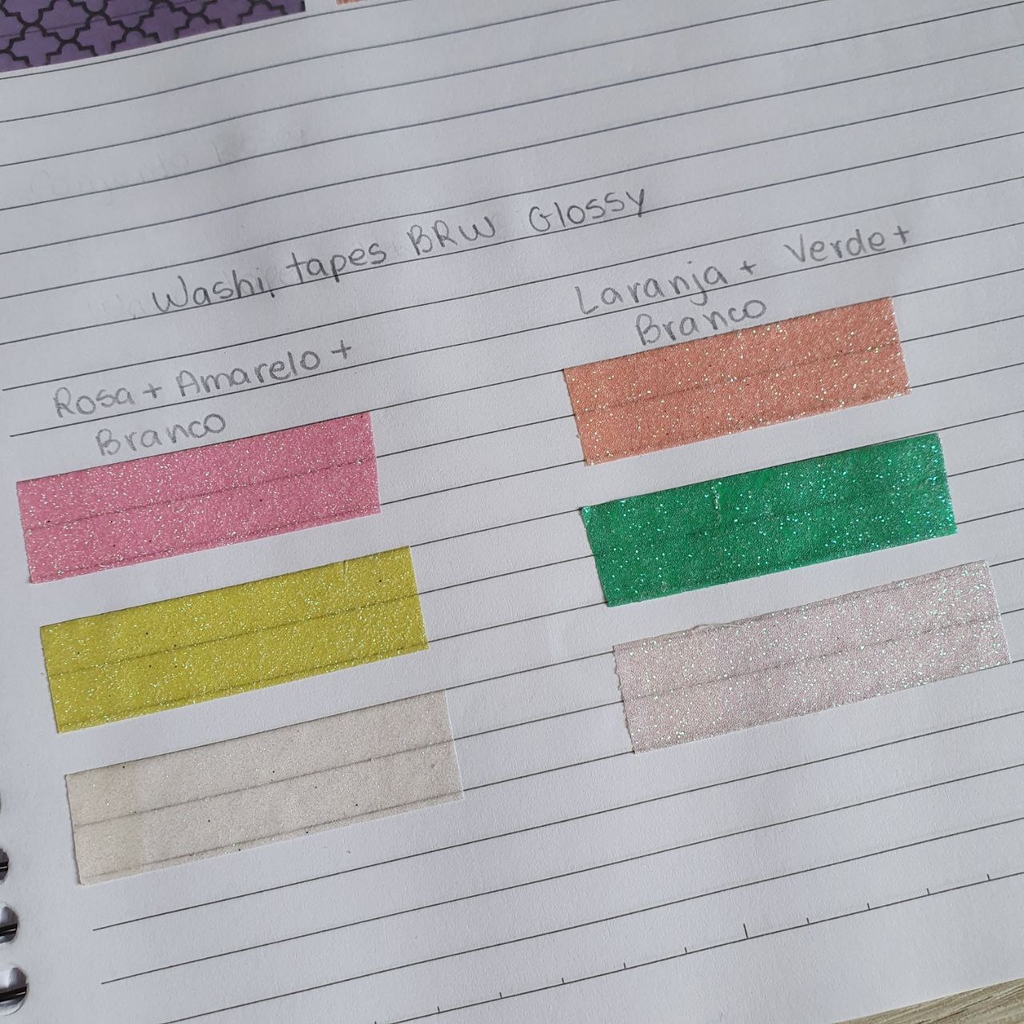 Washi tapes BRW Glossy
Rosa + Amarelo +
Branco
Laranja + Verde +
Branco